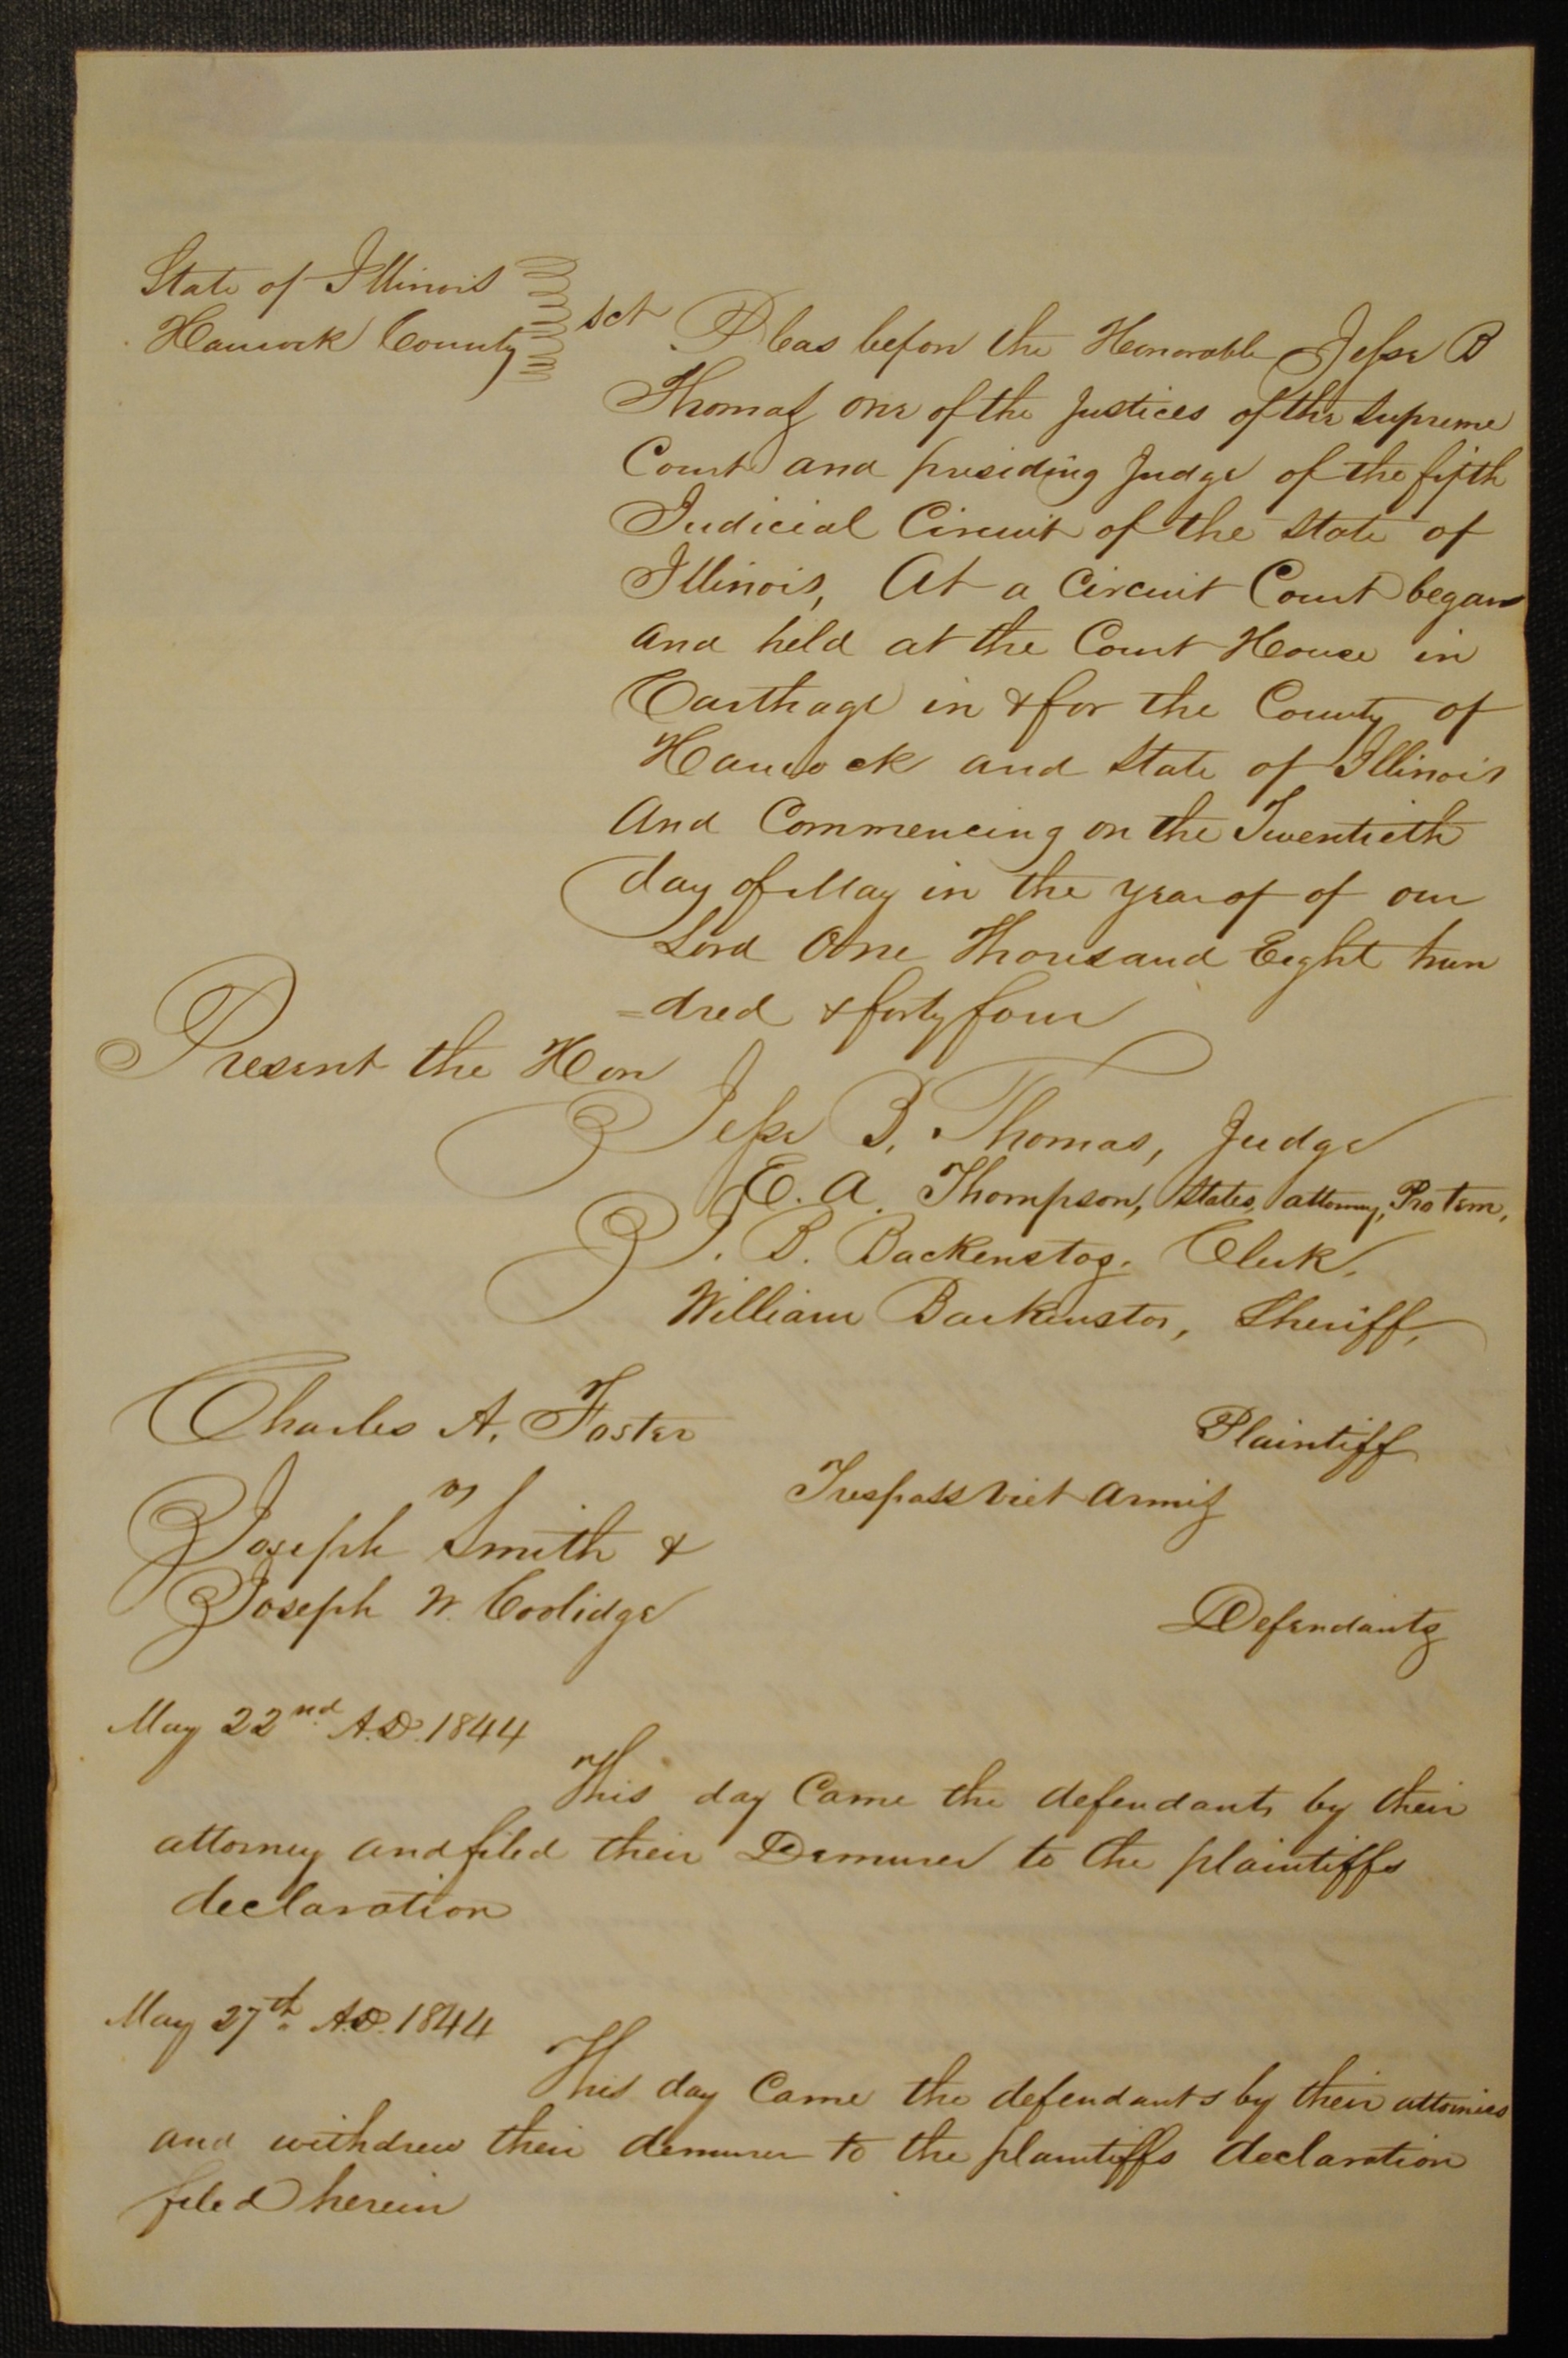 State of Illinois
Hancock County
sct Pleas before the Honorable Jesse B
Thomas one of the Justices of the Supreme
Court and presiding Judge of the fifth
Judicial Circuit of the State of
Illinois, At a Circuit Court began
and held at the Court House in
Carthage in & for the County of
Hancock and State of Illinois
And Commencing on the Twentieth
day of May in the year of of our
Lord One Thousand Eight hun
=dred & forty four
Present the Hon
Jesse B. Thomas, Judge
E. A. Thompson, States, attorney, Pro tem,
J. B. Backenstos. Clerk.
William Backenstos, Sheriff,
Charles A. Foster Plaintiff
vs Trespass Viet Armis
Joseph Smith &
Joseph W. Coolidge Defendants
May 22nd A.D. 1844
This day Came the defendants by their
attorney and filed their Demurer to the plaintiffs
declaration
May 27th A.D. 1844
This day Came the defendants by their attornies
and withdrew their demurer to the plaintiffs declaration
filed herein